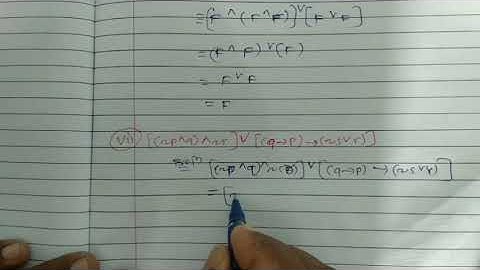 ≡ [F ∧ (F ∧ F)] ∨ [F ∨ F]
≡ (F ∧ F) ∨ (F)
≡ F ∨ F
≡ F
vii) [(~p ∧ q) ∧ ~r] ∨ [(q → p) → (~s ∨ r)]
Solⁿ [(~p ∧ q) ∧ ~(r)] ∨ [(q → p) → (~s ∨ r)]
= [